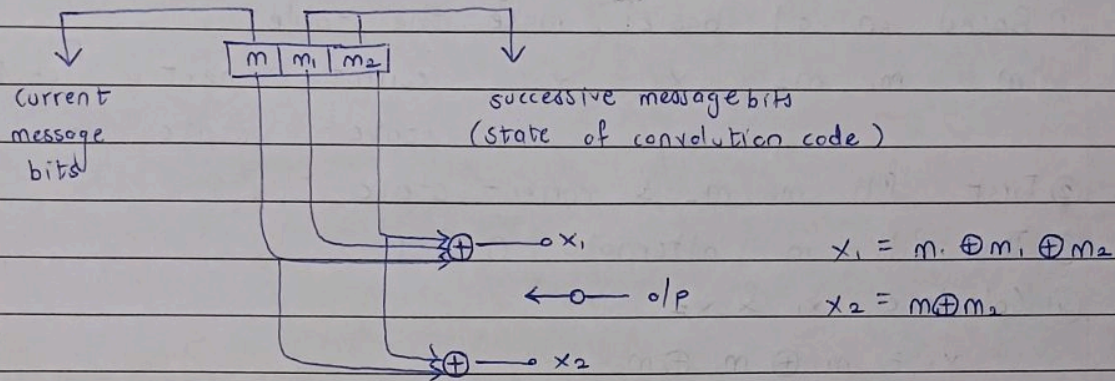 m m₁ m₂
Current
message
bits
successive message bits
(state of convolution code)
x₁
x₁ = m. ⊕ m₁ ⊕ m₂
o/p
x₂ = m⊕m₂
x₂